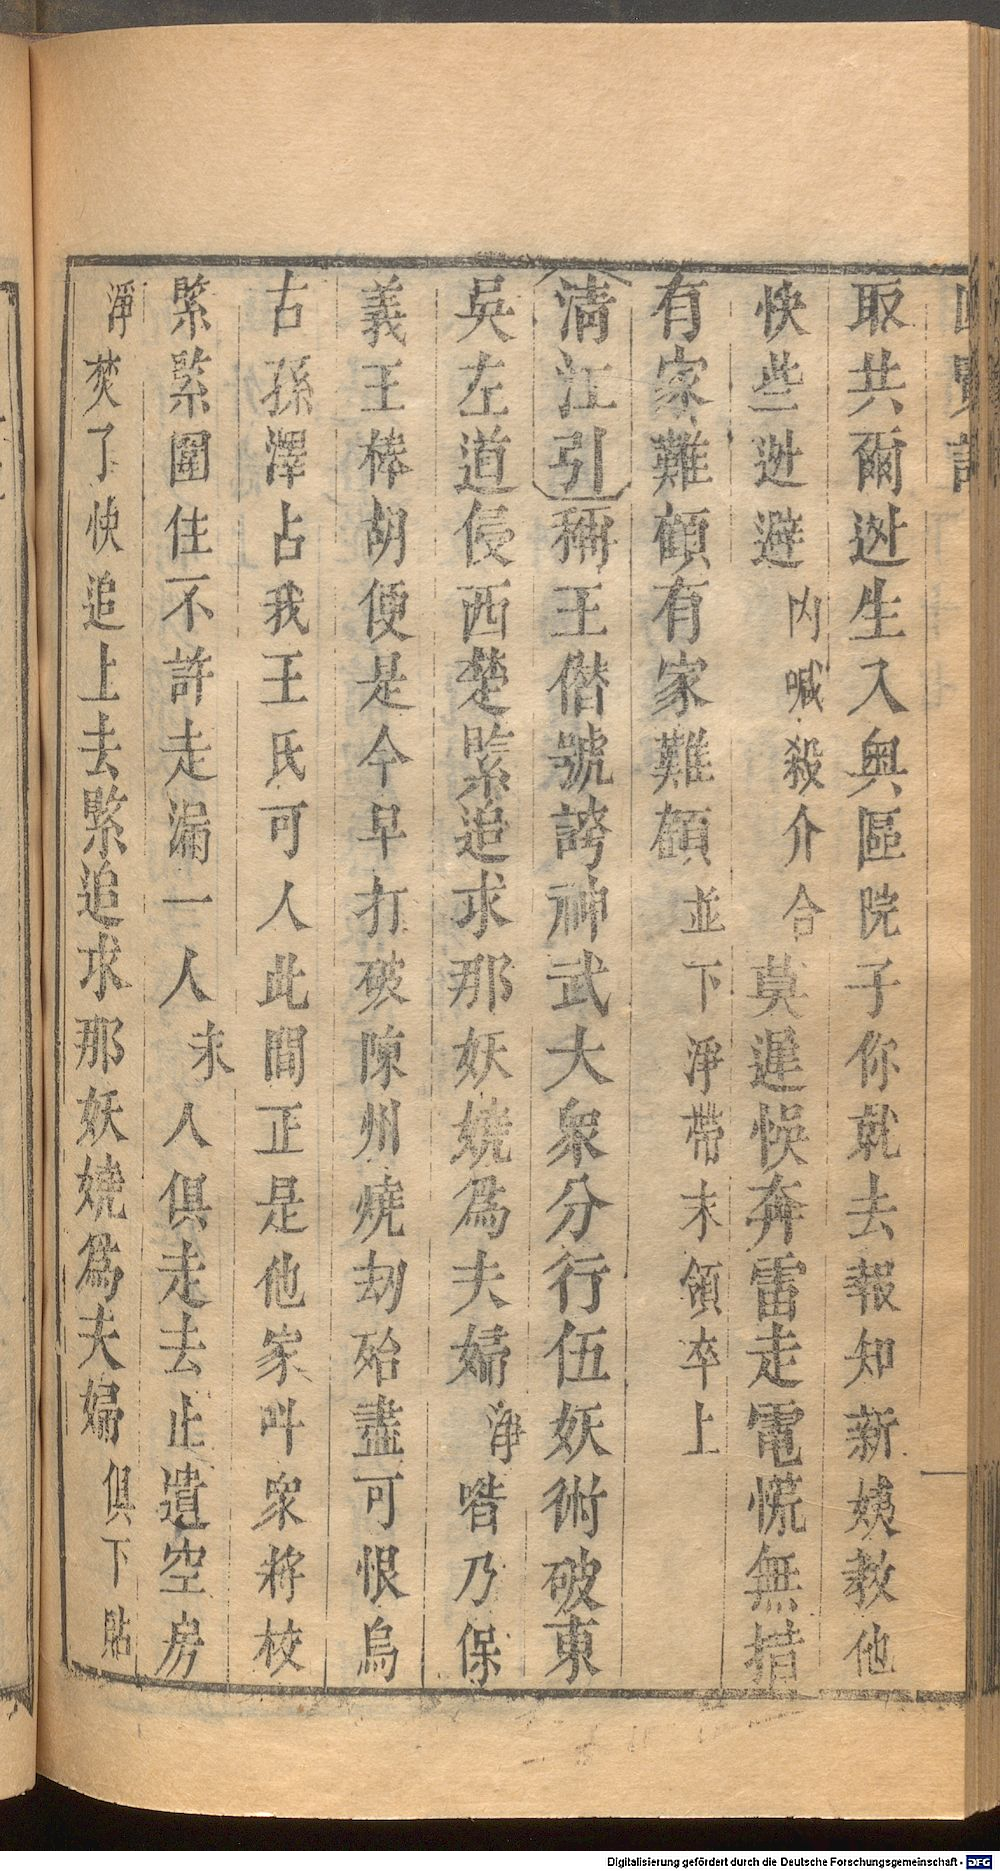 取共爾迯生入輿區院子你就去報知新姨教他
快些迯避内喊殺介合莫遲悞奔雷走電慌無措
有家難顧有家難顧並下淨帶末領卒上
清江引稱王僭號誇神武大衆分行伍妖術破東
吳左道侵西楚緊追求那妖嬈為夫婦淨喒乃保
義王棒胡便是今早打破陳州燒刼殆盡可恨烏
古孫澤占我王氏可人此間正是他家叫衆將校
緊緊圍住不許走漏一人末人俱走去止遺空房
淨焚了快追上去緊追求那妖嬈為夫婦俱下貼
Digitalisierung gefördert durch die Deutsche Forschungsgemeinschaft - DFG